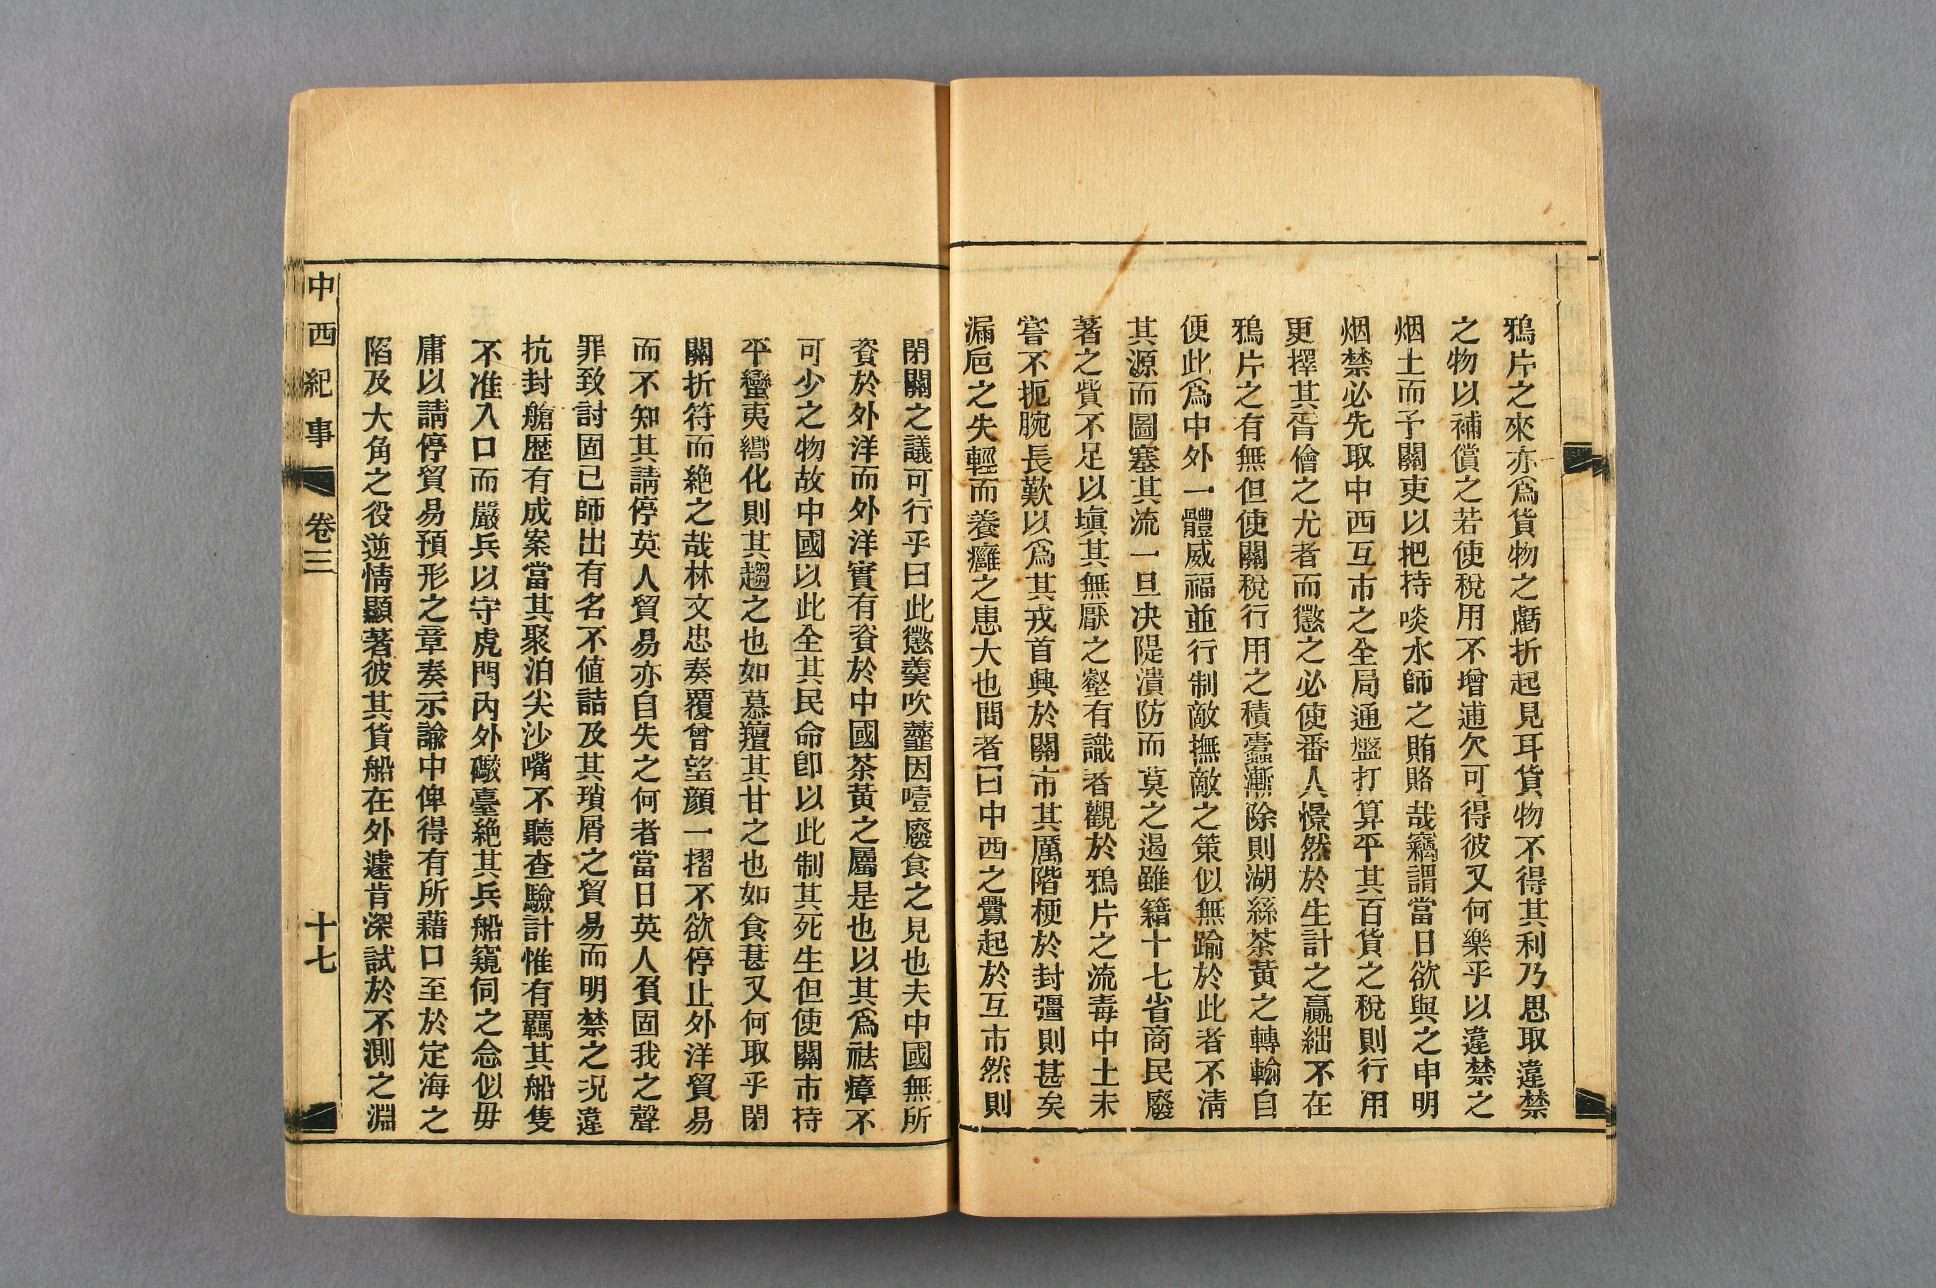 鴉片之來亦爲貨物之虧折起見耳貨物不得其利乃思取違禁
之物以補償之若使稅用不增逋欠可得彼又何樂乎以違禁之
烟土而予關吏以把持啖水師之賄賂哉竊謂當日欲與之申明
烟禁必先取中西互市之全局通盤打算平其百貨之稅則行用
更擇其胥儈之尤者而懲之必使番人懔然於生計之贏絀不在
鴉片之有無但使關稅行用之積蠹漸除則湖絲茶黃之轉輸自
便此爲中外一體威福並行制敵撫敵之策似無踰於此者不淸
其源而圖塞其流一旦決隄潰防而莫之遏雖籍十七省商民廢
著之貲不足以塡其無厭之壑有識者觀於鴉片之流毒中土未
嘗不扼腕長歎以爲其戎首興於關市其厲階梗於封彊則甚矣
漏巵之失輕而養癰之患大也問者曰中西之釁起於互市然則
閉關之議可行乎曰此懲羹吹虀因噎廢食之見也夫中國無所
資於外洋而外洋實有資於中國茶黃之屬是也以其爲祛瘴不
可少之物故中國以此全其民命卽以此制其死生但使關市持
平蠻夷嚮化則其趨之也如慕羶其甘之也如食葚又何取乎閉
關折符而絶之哉林文忠奏覆曾望顔一摺不欲停止外洋貿易
而不知其請停英人貿易亦自失之何者當日英人負固我之聲
罪致討固已師出有名不値詰及其瑣屑之貿易而明禁之况違
抗封艙歴有成案當其聚泊尖沙嘴不聽查驗計惟有羈其船隻
不准入口而嚴兵以守虎門內外礮臺絶其兵船窺伺之念似毋
庸以請停貿易預形之章奏示諭中俾得有所藉口至於定海之
陷及大角之役逆情顯著彼其貨船在外遽肯深試於不測之淵
中西紀事 卷三 十七